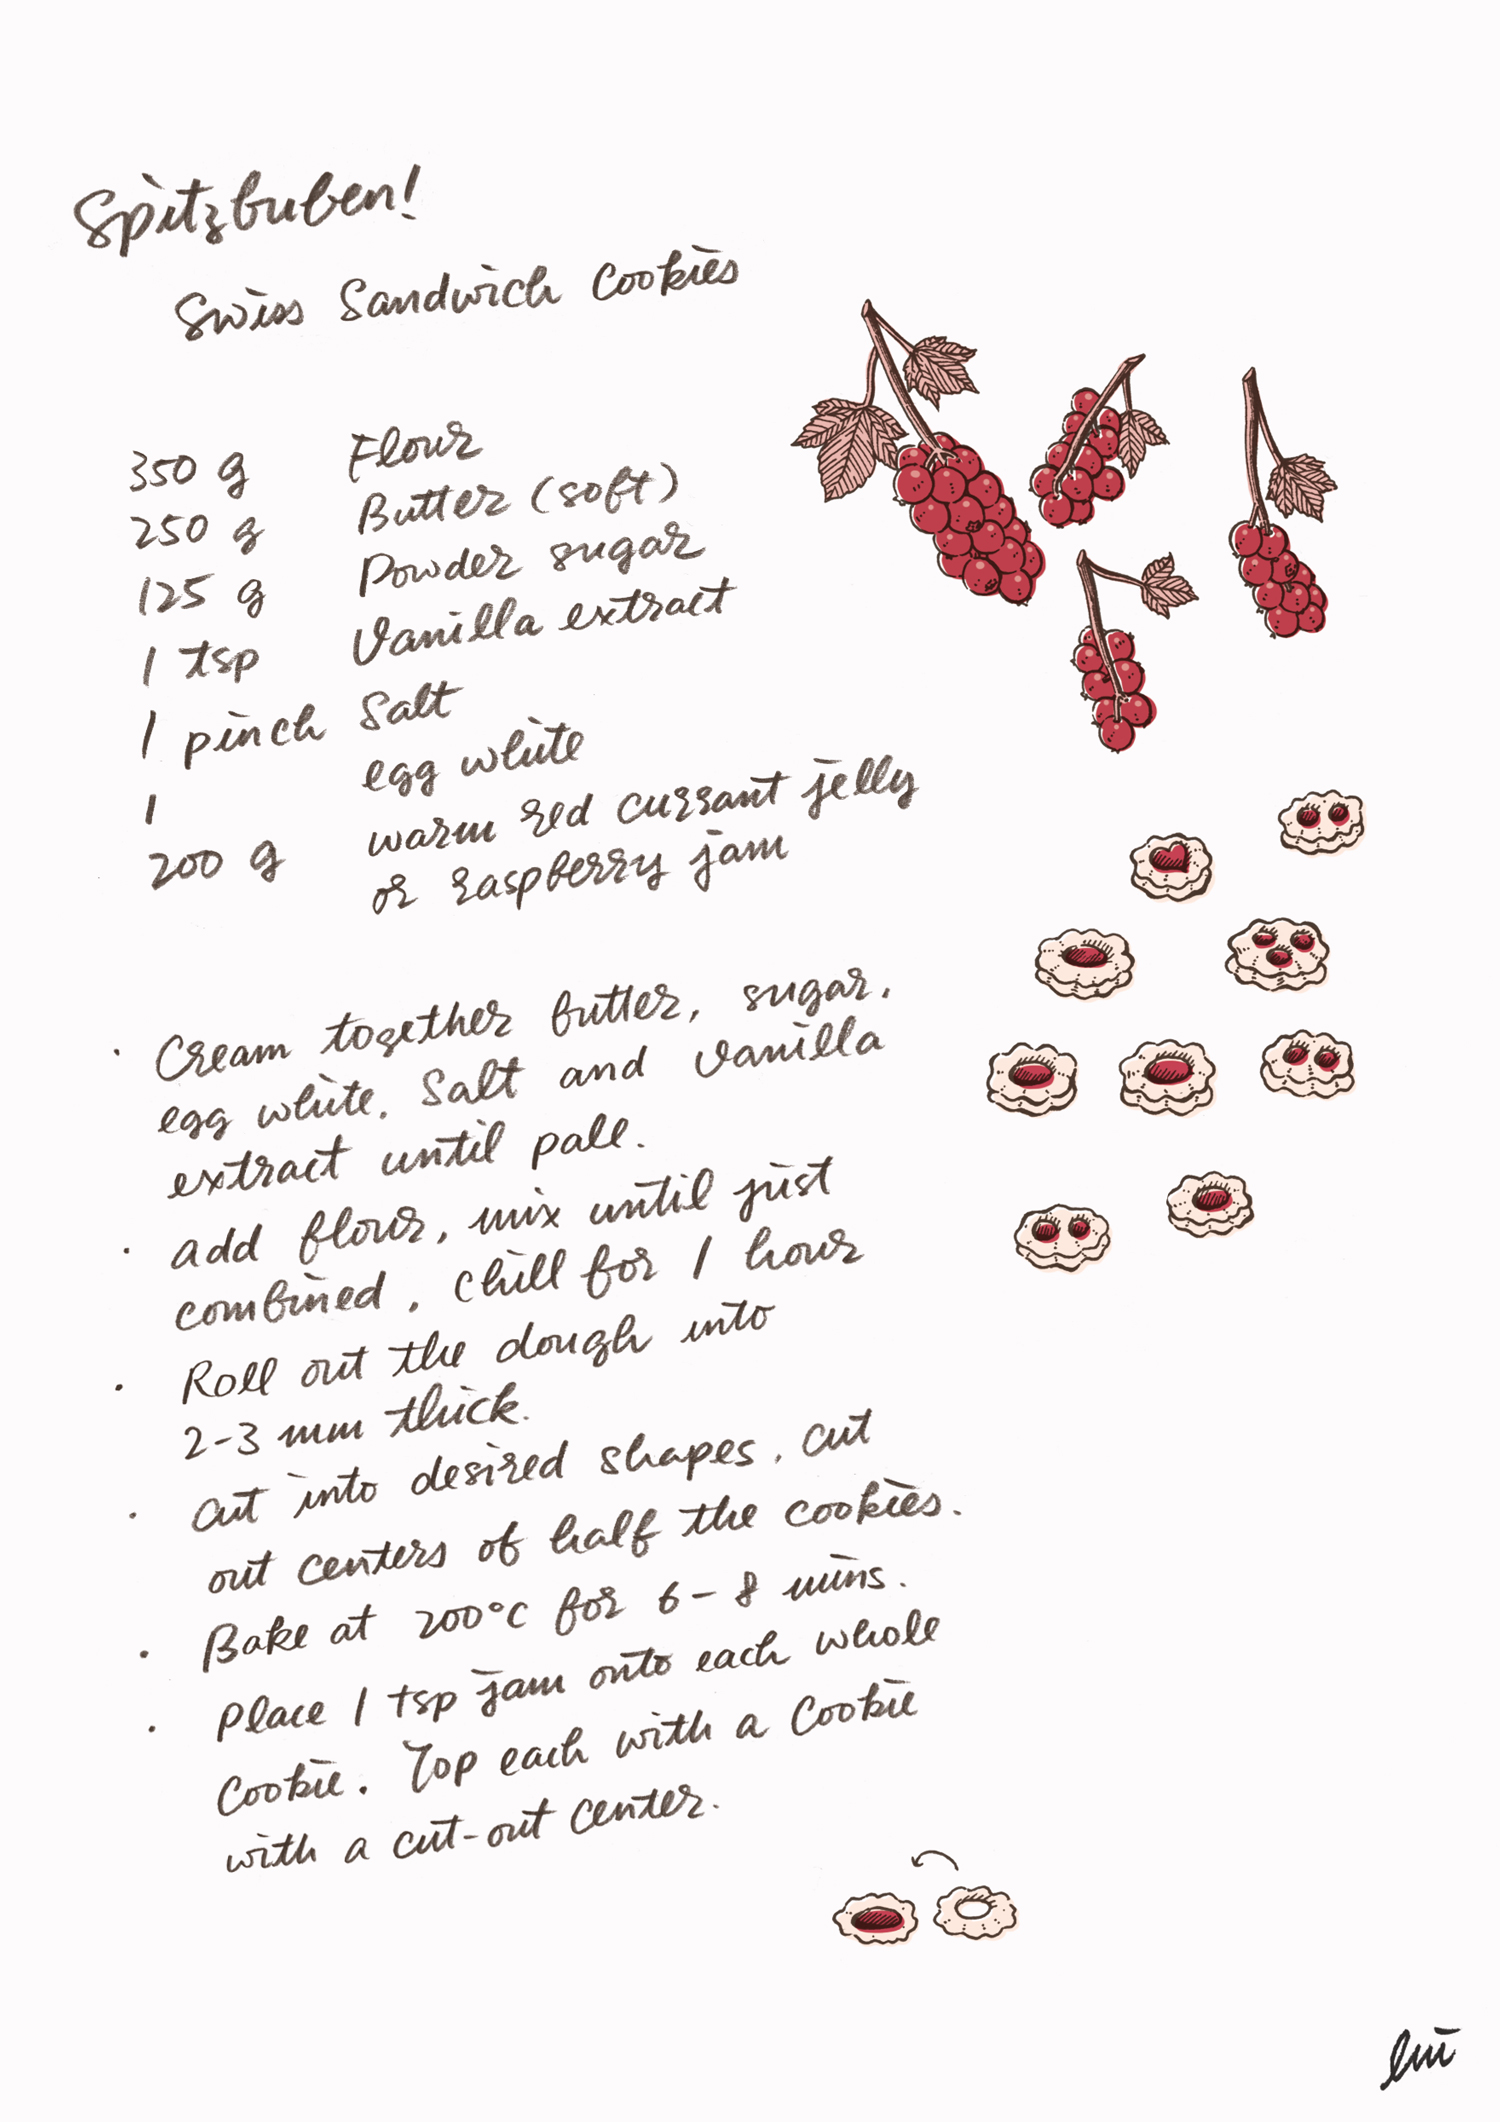 Spitzbuben!
Swiss Sandwich Cookies
350 g Flour
250 g Butter (soft)
125 g Powder sugar
1 tsp Vanilla extract
1 pinch Salt
1 egg white
200 g warm red currant jelly
or raspberry jam
· Cream together butter, sugar,
egg white, Salt and vanilla
extract until pale.
· add flour, mix until just
combined, chill for 1 hour
· Roll out the dough into
2-3 mm thick.
· Cut into desired shapes, cut
out centers of half the cookies.
· Bake at 200°C for 6-8 mins.
· Place 1 tsp jam onto each whole
Cookie. Top each with a Cookie
with a cut-out center.